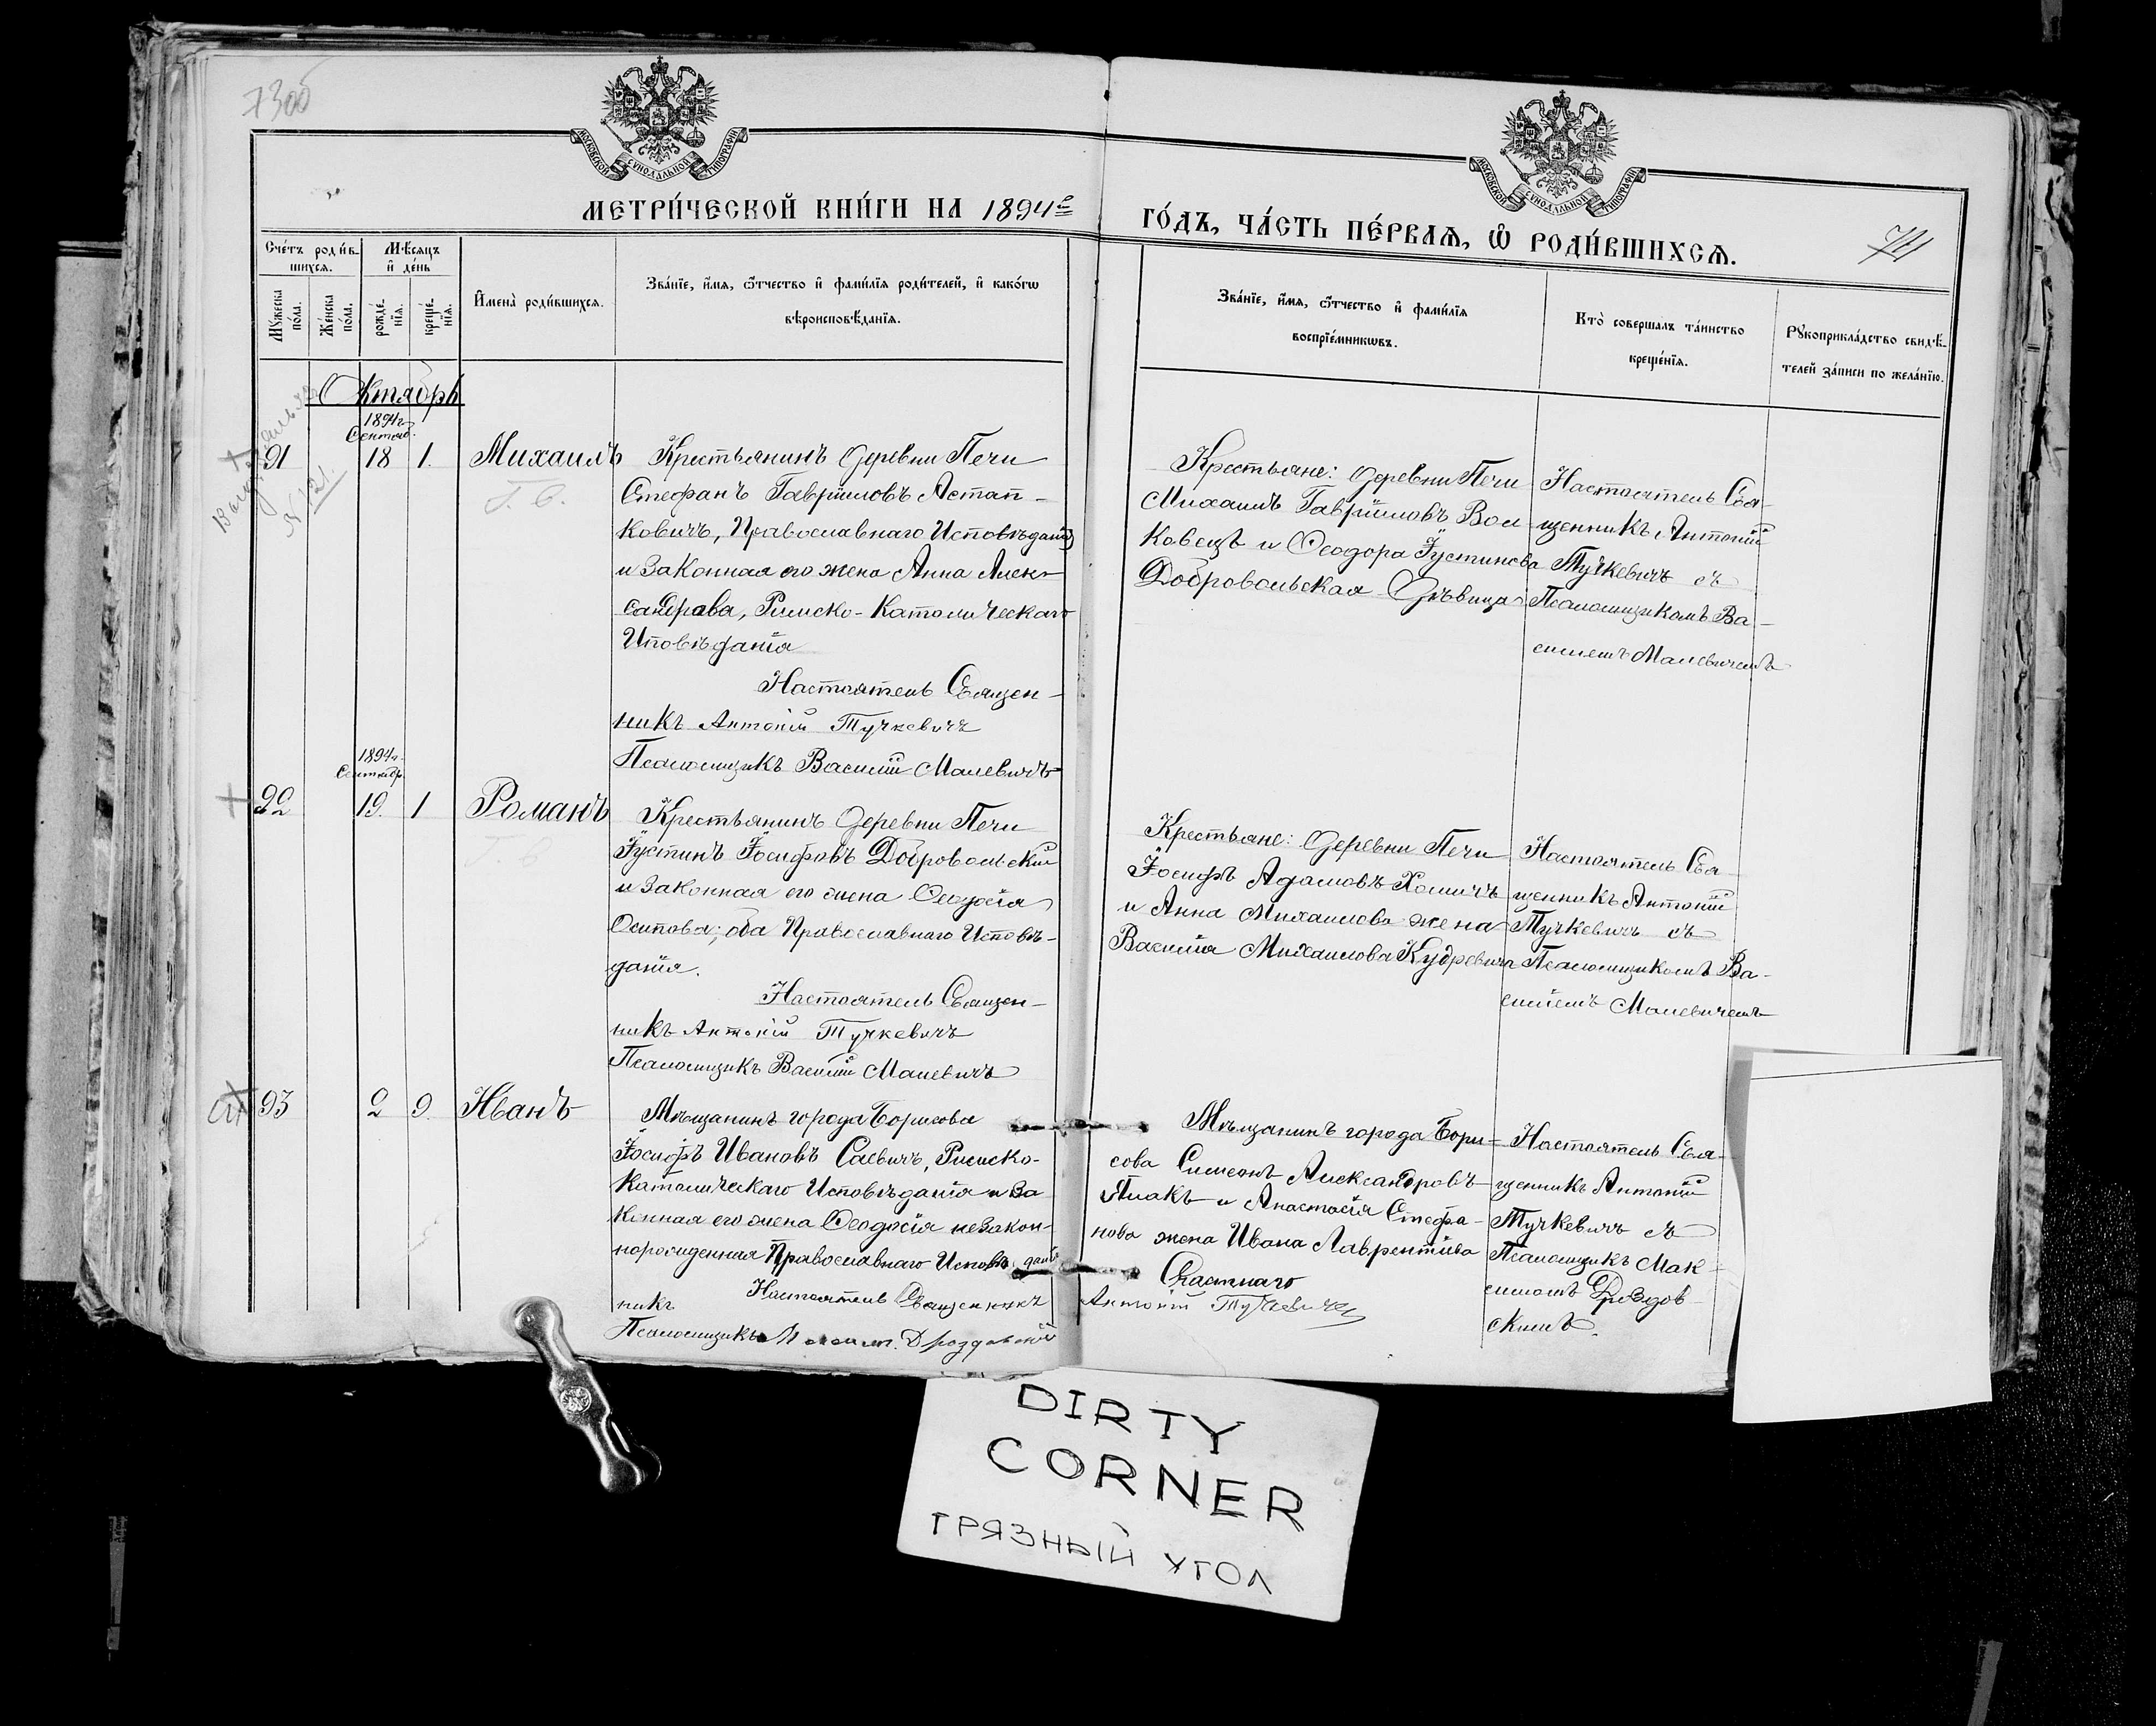 7300
МОСКОВСКОЙ СѴНОДАЛЬНОЙ ТИПОГРАФІИ
МОСКОВСКОЙ СѴНОДАЛЬНОЙ ТИПОГРАФІИ
МЕТРИ́ЧЕСКОЙ КНИ́ГИ НА 1894й
ГО́ДЪ, ЧА́СТЬ ПЕ́РВАѦ, Ѡ҆ РОДИ́ВШИХСѦ.
Сче́тъ роди́в-
шихсѧ.
Мѣ́сѧцъ
и҆ де́нь
Мꙋ́жеска
по́ла.
Же́нска
по́ла.
рожде́-
нїѧ.
креще́-
нїѧ.
И҆мена̀ роди́вшихсѧ.
Зва́нїе, и҆́мѧ, ѻ҆́тчество и҆ фами́лїѧ роди́телей, и҆ како́гѡ
вѣроисповѣ́данїѧ.
Зва́нїе, и҆́мѧ, ѻ҆́тчество и҆ фами́лїѧ
воспрїе́мникѡвъ.
Кто̀ соверша́лъ та́инство
креще́нїѧ.
Рꙋкоприкла́дство свидѣ́-
телей за́писи по жела́нїю.
Октябрь
1894г.
Сентяб.
91 18 1. Михаилъ
№ 121.
Г. В.
Крестьянинъ деревни Печи
Стефанъ Гавріиловъ Астап-
ковичъ, Православнаго Исповѣданія
и законная его жена Анна Алек-
сандрава, Римско-Католическаго
Иповѣданія
Настоятель Священ-
никъ Антоній Тучкевичъ
Псаломщикъ Василій Малевичъ
Крестьяне: деревни Печи
Михаилъ Гавріиловъ Вол-
ковецъ и Ѳеодора Іустинова
Добровольская Дѣвица
Настоятель Свя-
щенникъ Антоній
Тучкевичъ съ
Псаломщикомъ Ва-
силемъ Малевичемъ
1894г.
Сентябр.
92 19. 1 Романъ
Г. В
Крестьянинъ деревни Печи
Іустинъ Іосифовъ Добровольскій
и законная его жена Ѳеодосія
Осипова; оба Православнаго Исповѣ-
данія.
Настоятель Священ-
никъ Антоній Тучкевичъ
Псаломщикъ Василій Малевичъ
Крестьяне: деревни Печи
Іосифъ Адамовъ Хомичъ
и Анна Михаилова жена
Василія Михаилова Кудревича
Настоятель Свя-
щенникъ Антоній
Тучкевичъ съ
Псаломщикомъ Ва-
силіемъ Малевичемъ
93 2 9. Иванъ
Мѣщанинъ города Борисова
Іосифъ Ивановъ Саевичъ, Римско-
Католическаго Исповѣданія и за
конная его жена Ѳеодосія незакон-
норожденная Православнаго Исповѣданія
Настоятель Священникъ
никъ
Псаломщикъ Дроздовскій
Мѣщанинъ города Бори-
сова Симеонъ Александровъ
и Анастасія Стефа-
нова жена Ивана Лаврентіева
Скастнаго
Антоній Тучкевичъ
Настоятель Свя-
щенникъ Антоній
Тучкевичъ съ
Псаломщикъ Мак-
симомъ Дроздов-
скимъ.
DIRTY
CORNER
ГРЯЗНЫЙ УГОЛ